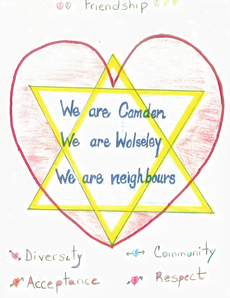 Friendship
We are Camden
We are Wolseley
We are neighbours
Diversity Community
Acceptance Respect